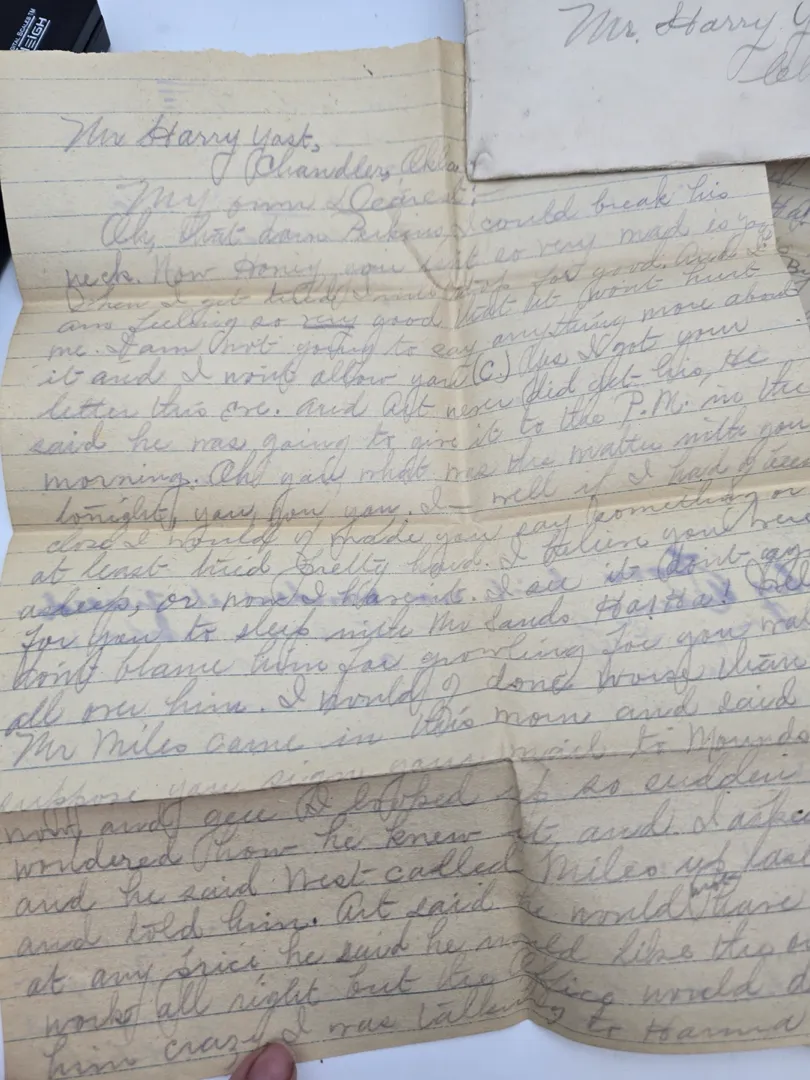 WEIGH
Mr. Harry
Mr Harry Yost,
Chandler, Okla
My own Dearest:
Oh, that darn Perkins, I could break his
neck. Now Honey you isn't so very mad is you
When I get tired I will stop for good. And I
am feeling so very good that it won't hurt
me. I am not going to say anything more about
it and I won't allow you (C.) Yes I got your
letter this eve. and Art never did get his, He
said he was going to give it to the P.M. in the
morning. Oh you what was the matter with you
tonight, you, you you. I— well if I had of been
close I would of made you say something or
at least tried pretty hard. I believe you were
asleep, or now I have it. I see it don't
for you to sleep with Mr Sands Ha! Ha!
don't blame him for growling for you
all over him. I would of done worse than
Mr Miles came in this morn and said
suppose you sign your mail to Mounds
now, and gee I looked up so sudden
wondered how he knew it and I
and he said West called Miles up last
and told him. Art said he would not have
at any price he said he would like the
work all right but the Office would
him crazy I was talking to Hanna